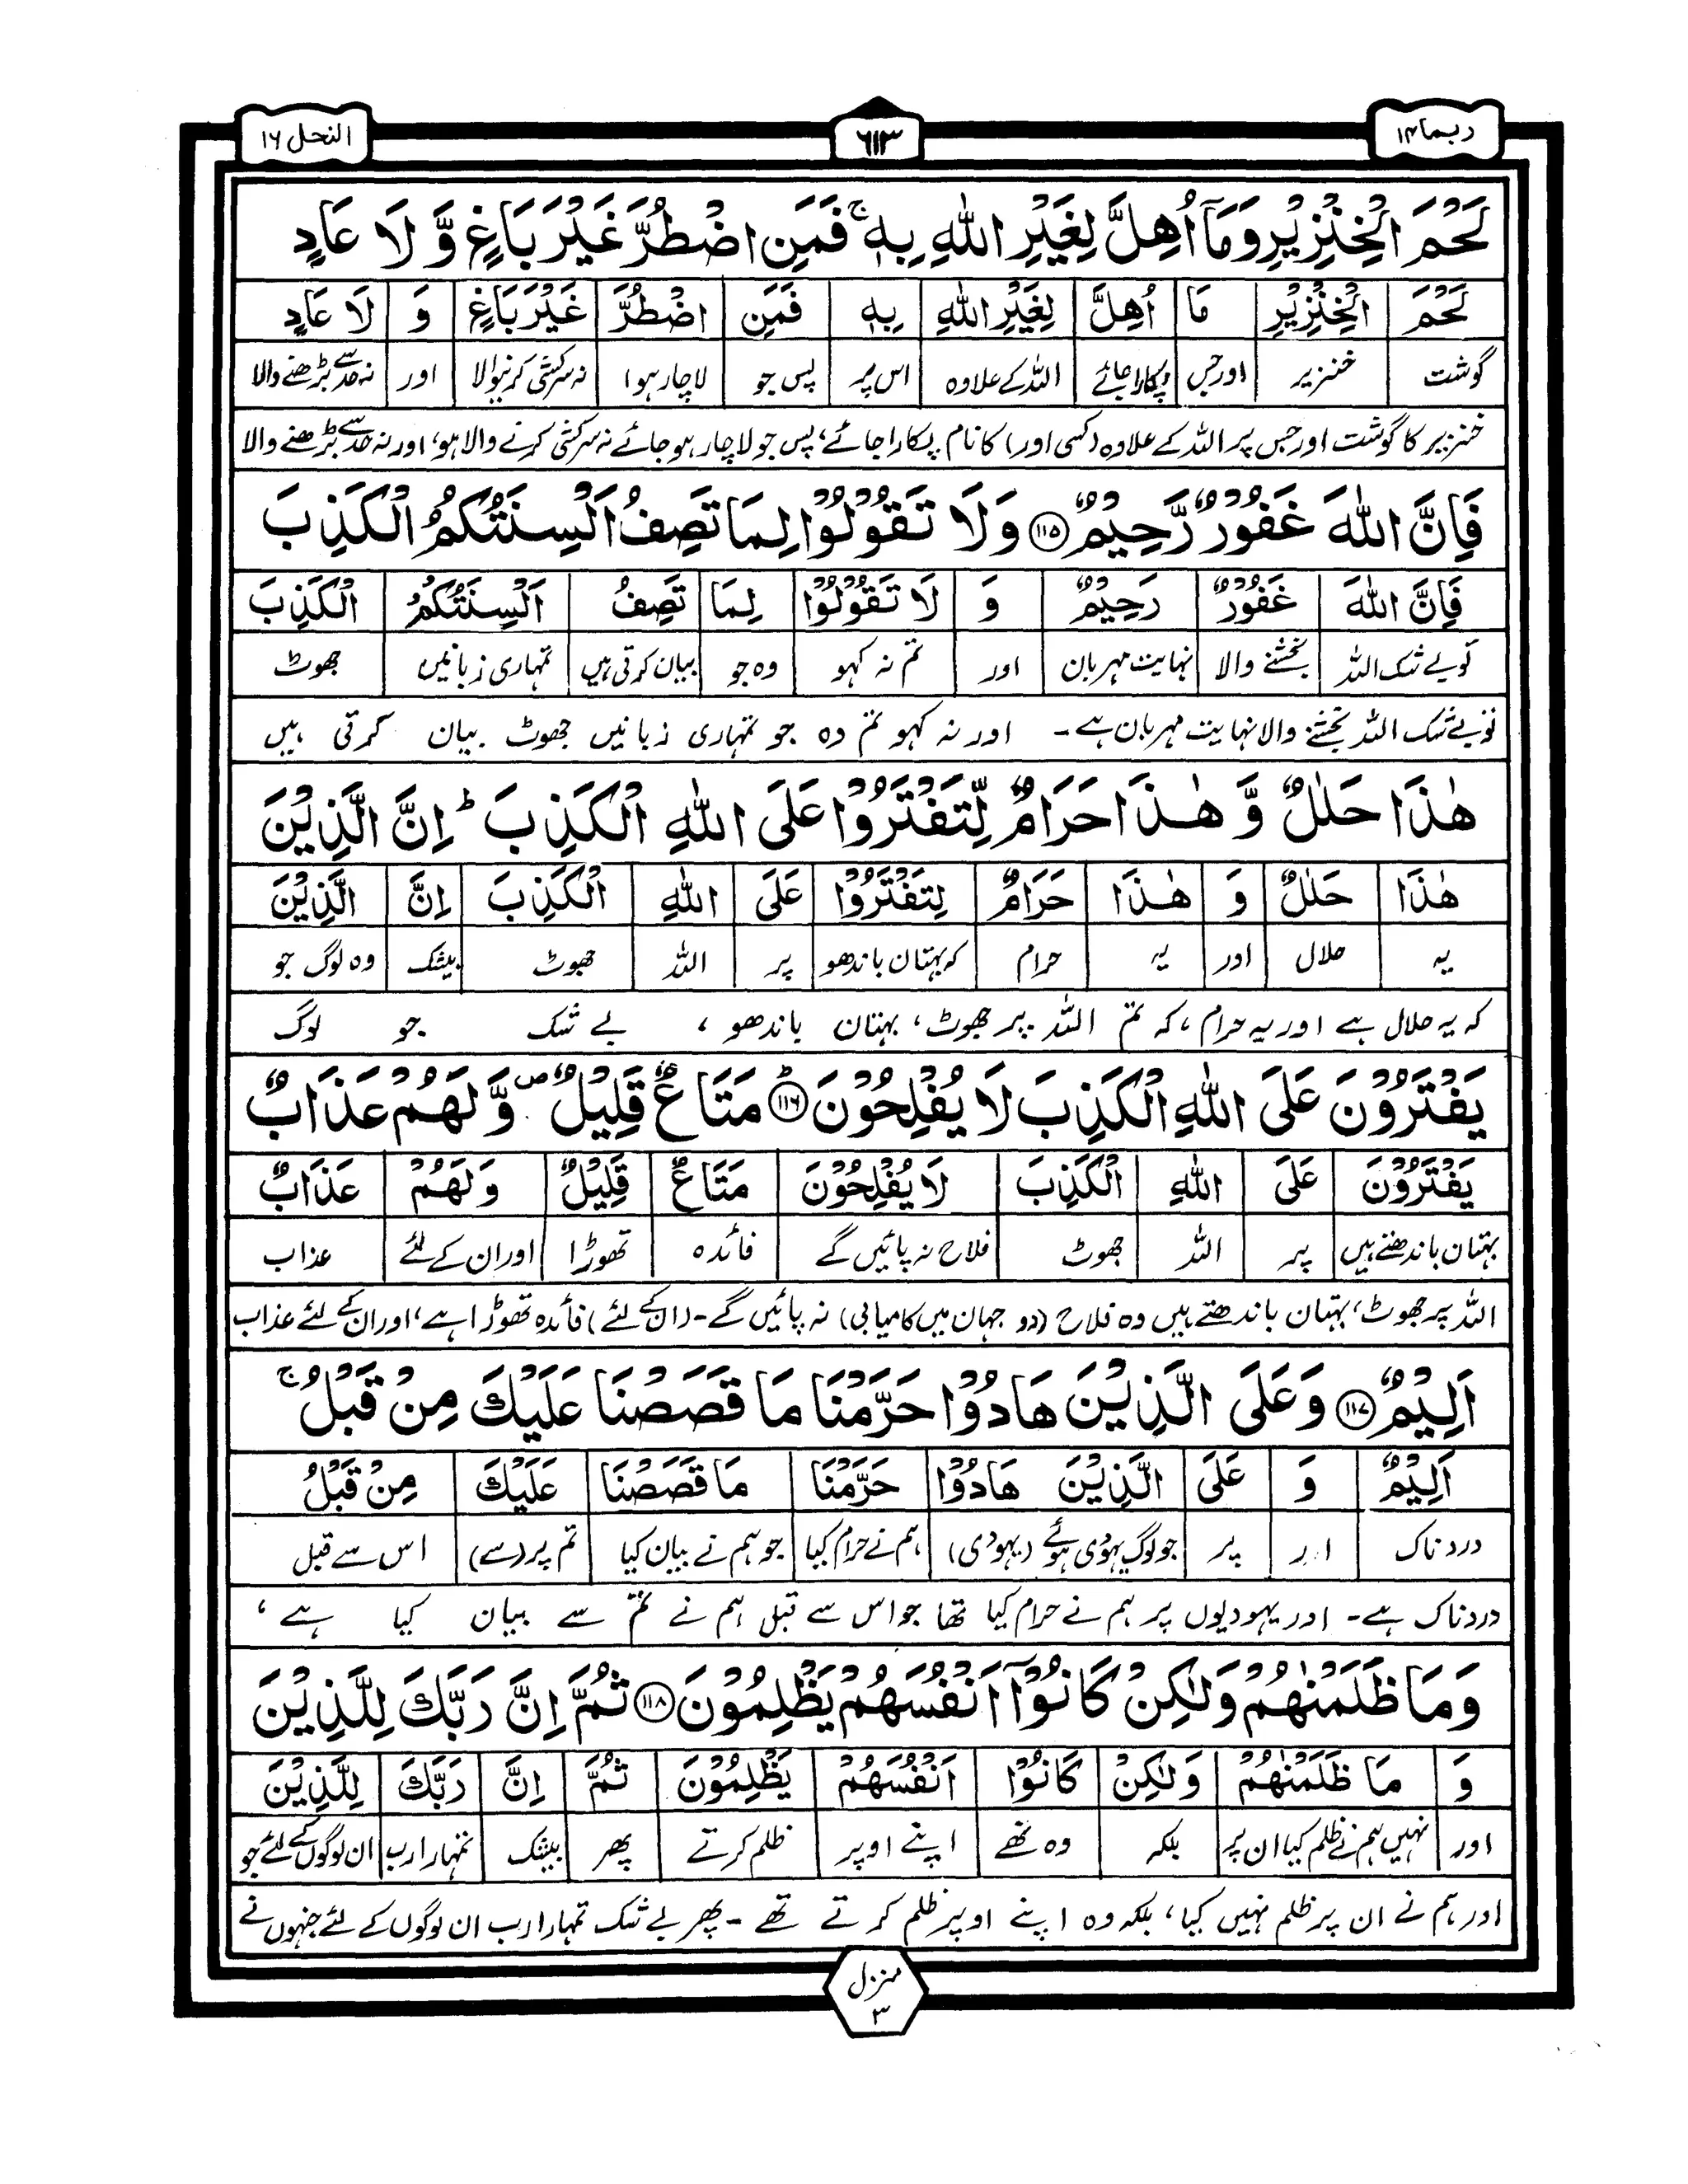 ربما ١٤
٦١٣
النحل ١٦
لَحْمَ الْخِنْزِيْرِ وَمَآ اُهِلَّ لِغَيْرِ اللّٰهِ بِهٖ ۚ فَمَنِ اضْطُرَّ غَيْرَ بَاغٍ وَّ لَا عَادٍ
لَحْمَ الْخِنْزِيْرِ مَا اُهِلَّ لِغَيْرِ اللّٰهِ بِهٖ فَمَنِ اضْطُرَّ غَيْرَ بَاغٍ وَ لَا عَادٍ
گوشت خنزیر اور جس پکارا جائے اللہ کے علاوہ اس پر پس جو لاچار ہوا نہ سرکشی کرنیوالا اور نہ حد سے بڑھنے والا
خنزیر کا گوشت اور جس پر اللہ کے علاوہ (کسی اور) کا نام پکارا جائے، پس جو لاچار ہو جائے نہ سرکشی کرنے والا ہو، اور نہ حد سے بڑھنے والا
فَاِنَّ اللّٰهَ غَفُوْرٌ رَّحِيْمٌ ١١٥ وَلَا تَقُوْلُوْا لِمَا تَصِفُ اَلْسِنَتُكُمُ الْكَذِبَ
فَاِنَّ اللّٰهَ غَفُوْرٌ رَحِيْمٌ وَ لَا تَقُوْلُوْا لِمَا تَصِفُ اَلْسِنَتُكُمُ الْكَذِبَ
تو بے شک اللہ بخشنے والا نہایت مہربان اور تم نہ کہو وہ جو بیان کرتی ہیں تمہاری زبانیں جھوٹ
تو بے شک اللہ بخشنے والا نہایت مہربان ہے۔ اور نہ کہو تم وہ جو تمہاری زبانیں جھوٹ بیان کرتی ہیں
هٰذَا حَلٰلٌ وَّ هٰذَا حَرَامٌ لِّتَفْتَرُوْا عَلَى اللّٰهِ الْكَذِبَ ؕ اِنَّ الَّذِيْنَ
هٰذَا حَلٰلٌ وَ هٰذَا حَرَامٌ لِتَفْتَرُوْا عَلَى اللّٰهِ الْكَذِبَ اِنَّ الَّذِيْنَ
یہ حلال اور یہ حرام کہ بہتان باندھو پر اللہ جھوٹ بیشک وہ لوگ جو
کہ یہ حلال ہے اور یہ حرام، کہ تم اللہ پر جھوٹ، بہتان باندھو، بے شک جو لوگ
يَفْتَرُوْنَ عَلَى اللّٰهِ الْكَذِبَ لَا يُفْلِحُوْنَ ؕ ١١٦ مَتَاعٌ قَلِيْلٌ ۪ وَّلَهُمْ عَذَابٌ
يَفْتَرُوْنَ عَلَى اللّٰهِ الْكَذِبَ لَا يُفْلِحُوْنَ مَتَاعٌ قَلِيْلٌ وَلَهُمْ عَذَابٌ
بہتان باندھتے ہیں پر اللہ جھوٹ فلاح نہ پائیں گے فائدہ تھوڑا اور ان کے لئے عذاب
اللہ پر جھوٹ، بہتان باندھتے ہیں وہ فلاح (دو جہان میں کامیابی) نہ پائیں گے۔ (ان کے لئے) فائدہ تھوڑا ہے، اور ان کے لئے عذاب
اَلِيْمٌ ١١٧ وَعَلَى الَّذِيْنَ هَادُوْا حَرَّمْنَا مَا قَصَصْنَا عَلَيْكَ مِنْ قَبْلُ ۚ
اَلِيْمٌ وَ عَلَى الَّذِيْنَ هَادُوْا حَرَّمْنَا مَا قَصَصْنَا عَلَيْكَ مِنْ قَبْلُ
دردناک اور پر جو لوگ یہودی ہوئے (یہودی) ہم نے حرام کیا جو ہم نے بیان کیا تم پر (سے) اس سے قبل
دردناک ہے۔ اور یہودیوں پر ہم نے حرام کیا تھا جو اس سے قبل ہم نے تم سے بیان کیا ہے،
وَمَا ظَلَمْنٰهُمْ وَلٰكِنْ كَانُوْٓا اَنْفُسَهُمْ يَظْلِمُوْنَ ١١٨ ثُمَّ اِنَّ رَبَّكَ لِلَّذِيْنَ
وَ مَا ظَلَمْنٰهُمْ وَلٰكِنْ كَانُوْا اَنْفُسَهُمْ يَظْلِمُوْنَ ثُمَّ اِنَّ رَبَّكَ لِلَّذِيْنَ
اور نہیں ہم نے ظلم کیا ان پر بلکہ وہ تھے اپنے اوپر ظلم کرتے پھر بیشک تمہارا رب ان لوگوں کے لئے جو
اور ہم نے ان پر ظلم نہیں کیا، بلکہ وہ اپنے اوپر ظلم کرتے تھے۔ پھر بے شک تمہارا رب ان لوگوں کے لئے جنہوں نے
منزل
٣